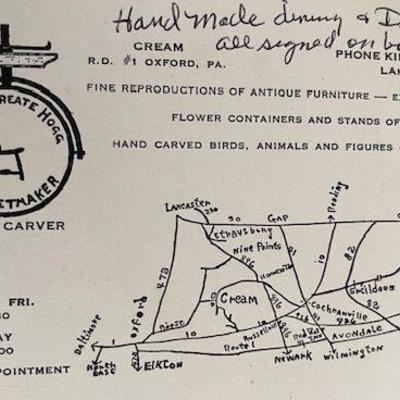 Hand Made dining & D
all signed on bo
CREAM
R.D. #1 OXFORD, PA.
PHONE KI
LA
FINE REPRODUCTIONS OF ANTIQUE FURNITURE — E
FLOWER CONTAINERS AND STANDS OF
HAND CARVED BIRDS, ANIMALS AND FIGURES
REATE HOGG
ETMAKER
CARVER
FRI.
00
APPOINTMENT
Lancaster
230
30
GAP
Reading
Strausburg
Nine Points
896
41
10
82
472
Homeville
896
Cream
Oxford
Cochranville
896
Ercildoun
82
10
Russellville
Route 1
10
AVONDALE
Baltimore
North
EAST
Elkton
Newark
Wilmington